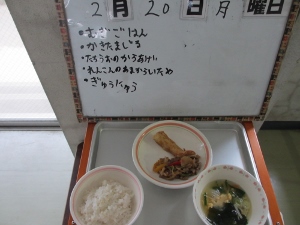 2月20日月曜日
•むぎごはん
•かきたまじる
•たちうおのからあげ
•れんこんのあまからいため
•ぎゅうにゅう